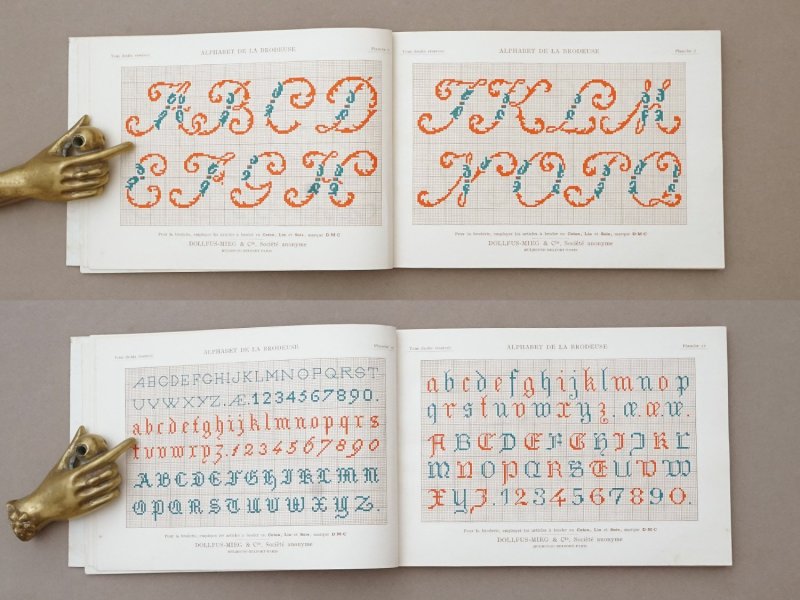 Tous droits réservés
ALPHABET DE LA BRODEUSE
Planche
A B C D
E F G H
Pour la broderie, employer les articles à broder en Coton, Lin et Soie, marque D·M·C
DOLLFUS-MIEG & Cie, Société anonyme
MULHOUSE-BELFORT-PARIS
Tous droits réservés
ALPHABET DE LA BRODEUSE
Planche
J K L M
N O P Q
Pour la broderie, employer les articles à broder en Coton, Lin et Soie, marque D·M·C
DOLLFUS-MIEG & Cie, Société anonyme
MULHOUSE-BELFORT-PARIS
Tous droits réservés
ALPHABET DE LA BRODEUSE
Planche
ABCDEFGHIJKLMNOPQRST
UVWXYZ.Æ.1234567890.
abcdefghijklmnopqrs
tuvwxyz.1234567890
ABCDEFGHIKLMN
OPQRSTUVWXYZ.
Pour la broderie, employer les articles à broder en Coton, Lin et Soie, marque D·M·C
DOLLFUS-MIEG & Cie, Société anonyme
MULHOUSE-BELFORT-PARIS
Tous droits réservés
ALPHABET DE LA BRODEUSE
Planche
abcdefghijklmnop
qrstuvwxyz.æ.œ.
ABCDEFGHIJKL
MNOPQRSTUVW
XYZ.1234567890.
Pour la broderie, employer les articles à broder en Coton, Lin et Soie, marque D·M·C
DOLLFUS-MIEG & Cie, Société anonyme
MULHOUSE-BELFORT-PARIS